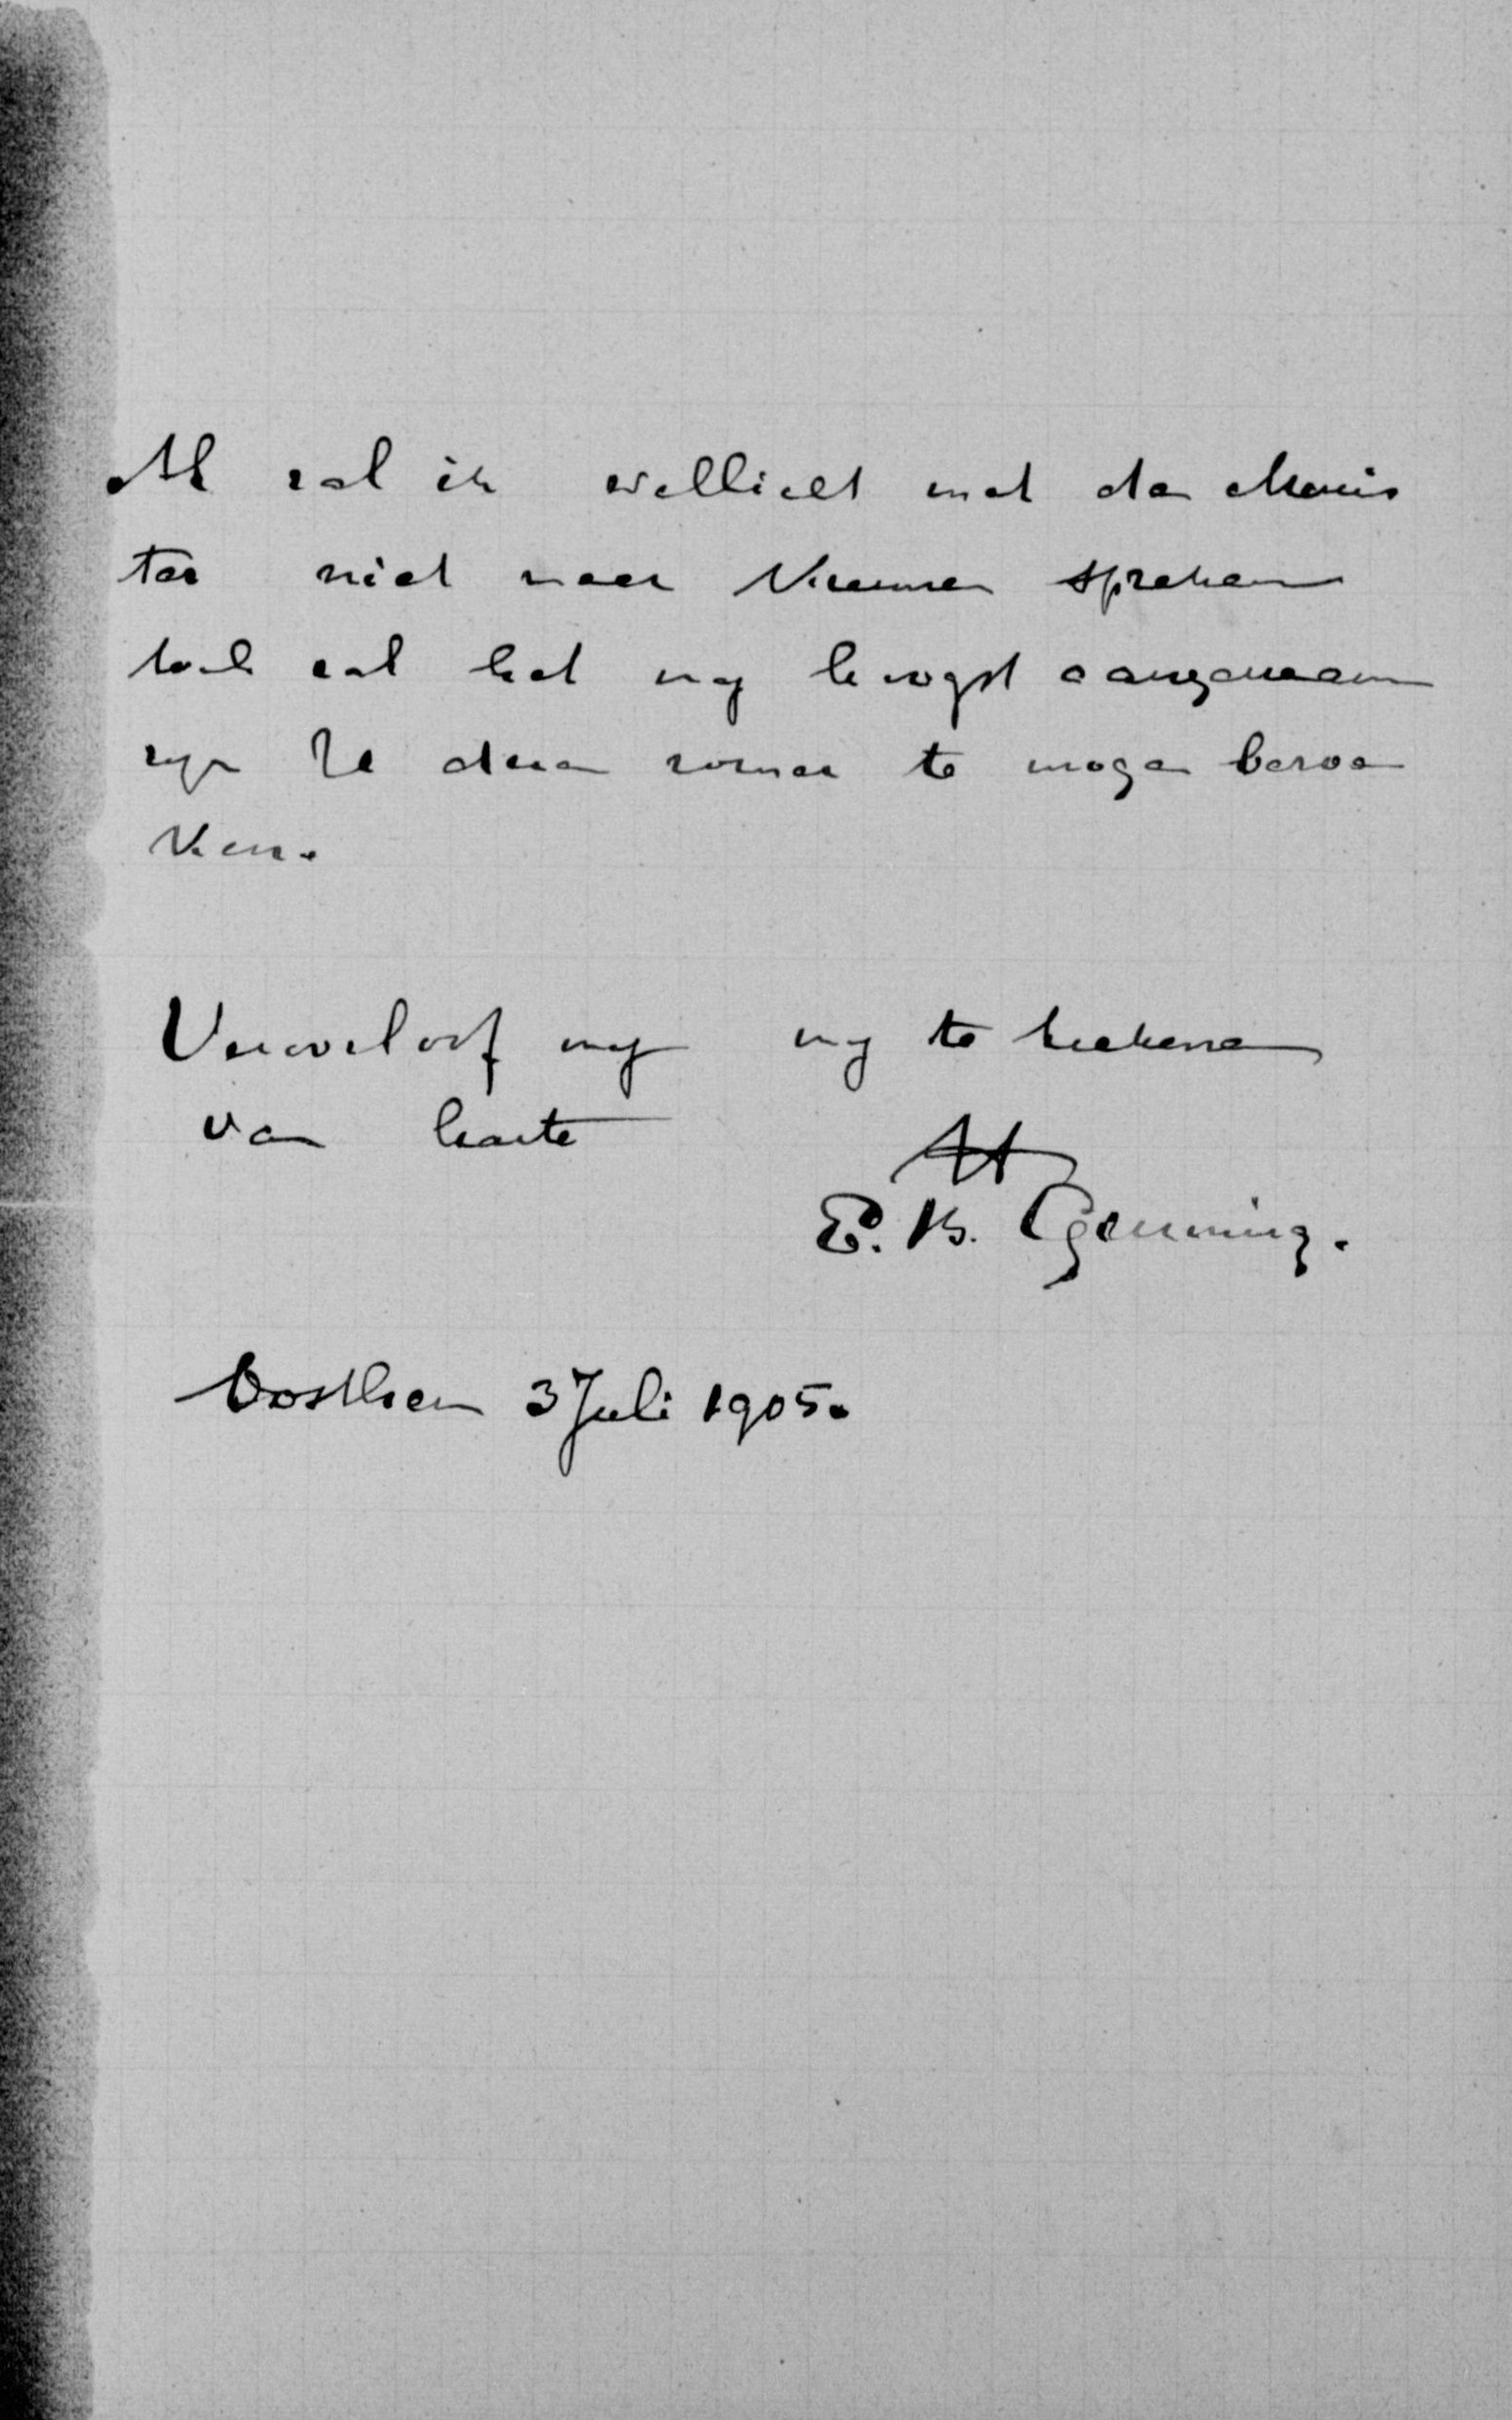 Al zal ik wellicht met den Minis
ter niet meer kunnen spreken
toch zal het my hoogst aangenaam
zyn Ue dezen zomer te mogen bezoe
ken.
Veroorloof my my te teekenen
van harte
tt
E. B. Gemming.
Oosthem 3 Juli 1905.